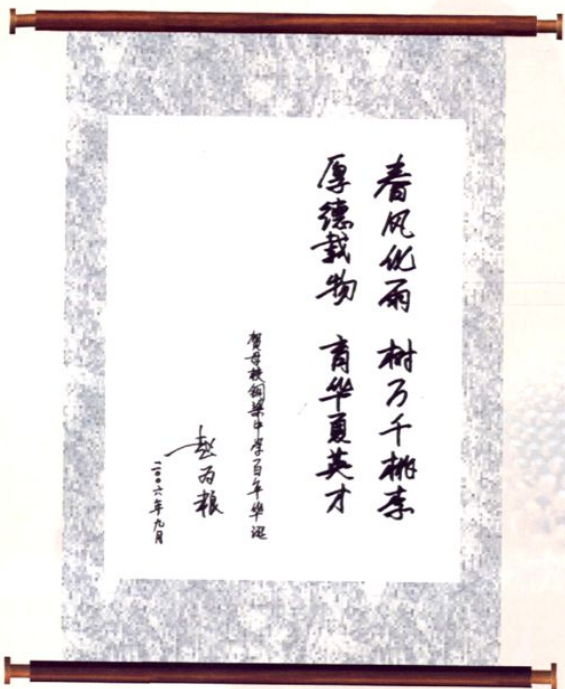 春风化雨 树万千桃李
厚德载物 育华夏英才
贺母校铜梁中学百年华诞
赵为粮
二〇〇六年九月